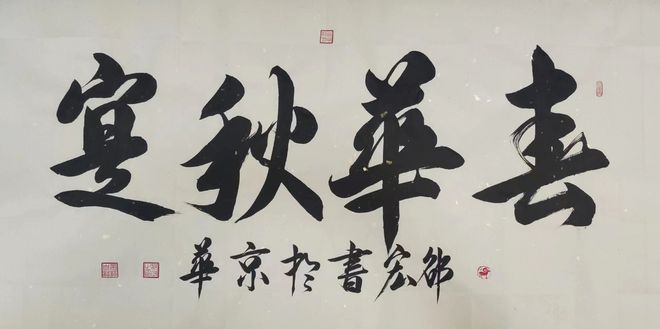 春華秋寔
宏書於京華